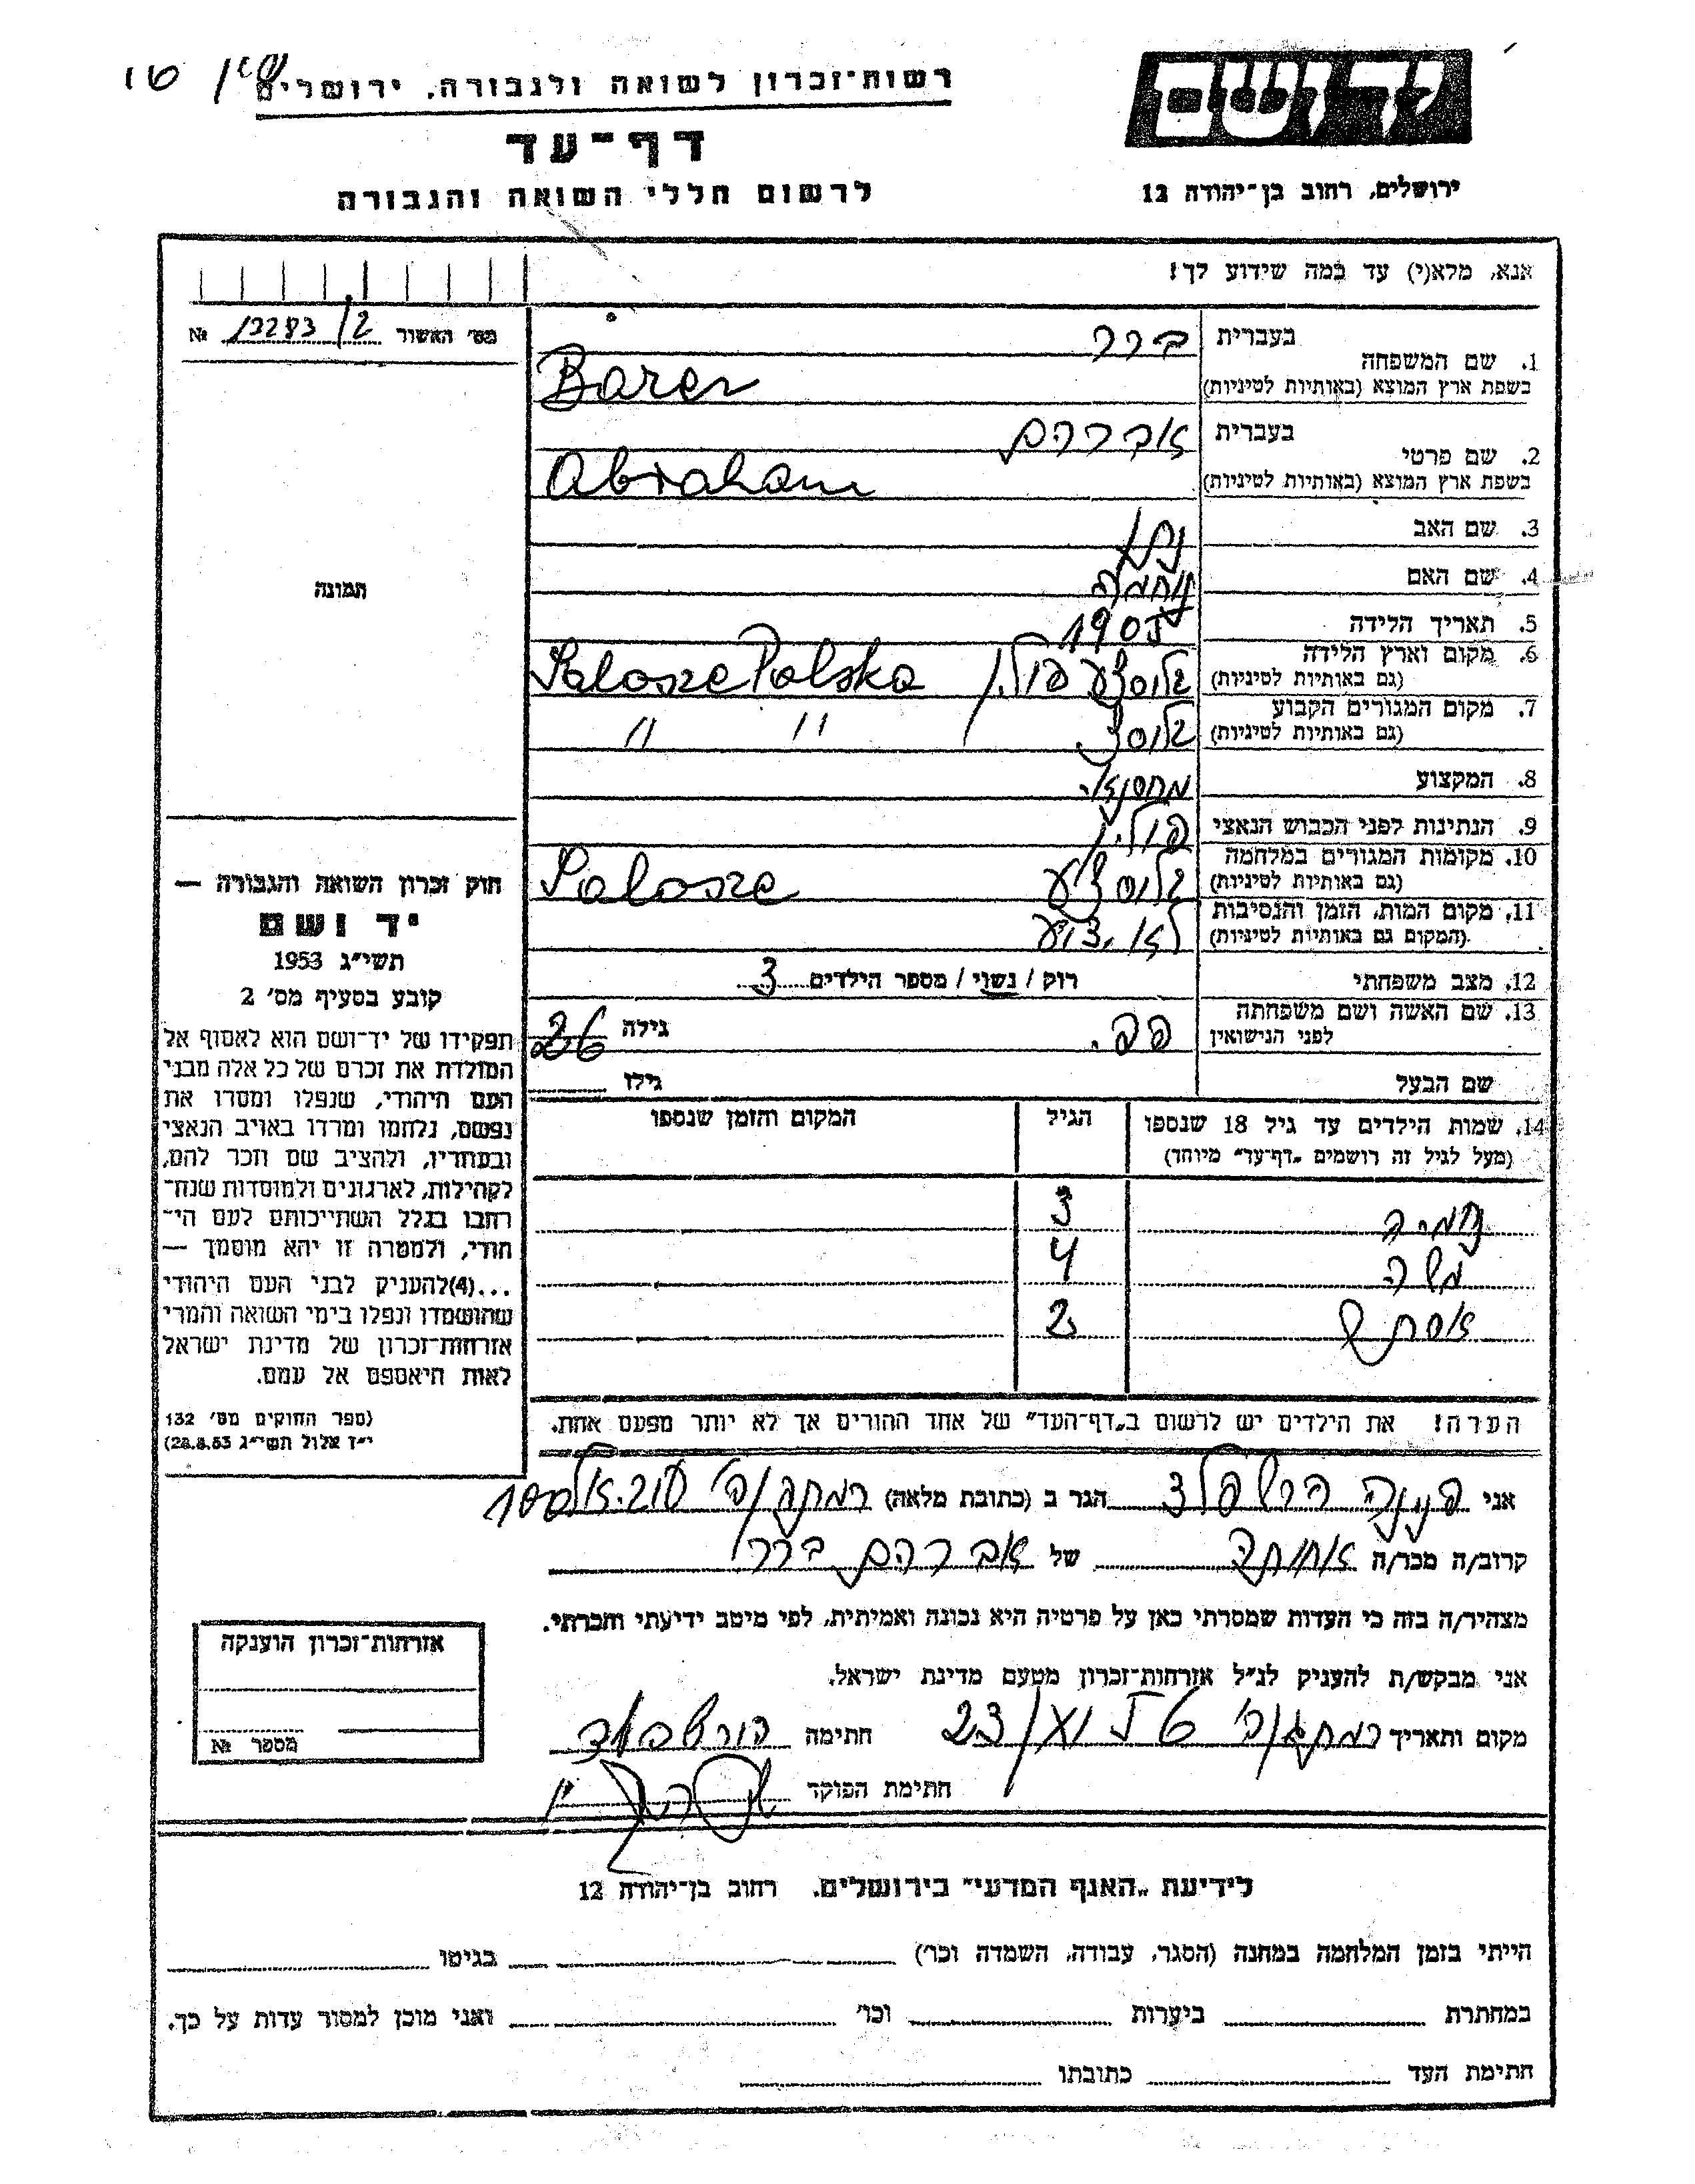 רשות־זכרון לשואה ולגבורה, ירושלים
דף־עד
לרשום חללי השואה והגבורה
יד ושם
ירושלים, רחוב בן־יהודה 12
אנא, מלא(י) עד כמה שידוע לך!
מס׳ האשור 13283/2 №
תמונה
חוק זכרון השואה והגבורה —
יד ושם
תשי״ג 1953
קובע בסעיף מס׳ 2
תפקידו של יד־ושם הוא לאסוף אל
המולדת את זכרם של כל אלה מבני
העם היהודי, שנפלו ומסרו את
נפשם, נלחמו ומרדו באויב הנאצי
ובעוזריו, ולהציב שם וזכר להם,
לקהילות, לארגונים ולמוסדות שנח־
רחבו בגלל השתייכותם לעם הי־
הודי, ולמטרה זו יהא מוסמך —
...(4) להעניק לבני העם היהודי
שהושמדו ונפלו בימי השואה והמרי
אזרחות־זכרון של מדינת ישראל
לאות היאספם אל עמם.
(ספר החוקים מס׳ 132
י״ז אלול תשי״ג 28.8.53)
1. שם המשפחה
בעברית ברר
בשפת ארץ המוצא (באותיות לטיניות) Barer
2. שם פרטי
בעברית אברהם
בשפת ארץ המוצא (באותיות לטיניות) Abraham
3. שם האב נתן
4. שם האם נחמה
5. תאריך הלידה 1905
6. מקום וארץ הלידה
(גם באותיות לטיניות) פולין Polska
7. מקום המגורים הקבוע
(גם באותיות לטיניות) " "
8. המקצוע מחסנאי
9. הנתינות לפני הכבוש הנאצי פולין
10. מקומות המגורים במלחמה
(גם באותיות לטיניות)
11. מקום המות, הזמן והנסיבות
(המקום גם באותיות לטיניות) לא ידוע
12. מצב משפחתי רוק / נשוי / מספר הילדים 3
13. שם האשה ושם משפחתה
לפני הנישואין גילה 26
שם הבעל גילו
14. שמות הילדים עד גיל 18 שנספו הגיל המקום והזמן שנספו
(מעל לגיל זה רושמים „דף־עד״ מיוחד)
נחמיה 3
משה 4
אסתר 2
הערה! את הילדים יש לרשום ב„דף־העד״ של אחד ההורים אך לא יותר מפעם אחת.
אני פנינה הגר ב (כתובת מלאה)
קרוב/ה מכר/ה אחותה של אברהם ברר
מצהיר/ה בזה כי העדות שמסרתי כאן על פרטיה היא נכונה ואמיתית, לפי מיטב ידיעתי והכרתי.
אני מבקש/ת להעניק לנ״ל אזרחות־זכרון מטעם מדינת ישראל.
מקום ותאריך חתימה
חתימת הפוקד
אזרחות־זכרון הוענקה
מספר №
לידיעת „האגף המדעי״ בירושלים, רחוב בן־יהודה 12
הייתי בזמן המלחמה במחנה (הסגר, עבודה, השמדה וכו׳) בגיטו
במחתרת ביערות וכו׳ ואני מוכן למסור עדות על כך.
חתימת העד כתובתו